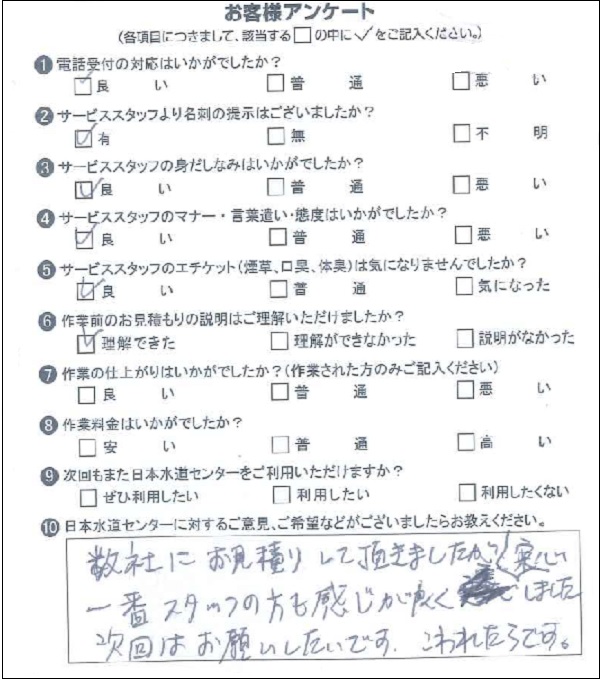 お客様アンケート
(各項目につきまして、該当する□の中に✓をご記入ください。)
❶ 電話受付の対応はいかがでしたか?
☑良い □普通 □悪い
❷ サービススタッフより名刺の提示はございましたか?
☑有 □無 □不明
❸ サービススタッフの身だしなみはいかがでしたか?
☑良い □普通 □悪い
❹ サービススタッフのマナー・言葉遣い・態度はいかがでしたか?
☑良い □普通 □悪い
❺ サービススタッフのエチケット(煙草、口臭、体臭)は気になりませんでしたか?
☑良い □普通 □気になった
❻ 作業前のお見積もりの説明はご理解いただけましたか?
☑理解できた □理解ができなかった □説明がなかった
❼ 作業の仕上がりはいかがでしたか?(作業された方のみご記入ください)
□良い □普通 □悪い
❽ 作業料金はいかがでしたか?
□安い □普通 □高い
❾ 次回もまた日本水道センターをご利用いただけますか?
□ぜひ利用したい □利用したい □利用したくない
❿ 日本水道センターに対するご意見、ご希望などがございましたらお教えください。
数社にお見積りして頂きましたが
一番スタッフの方も感じが良く でしました
次回はお願いしたいです。こわれたらです。